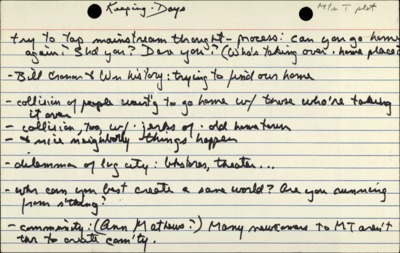 Keeping Days
M/n T plot
try to tap mainstream thought-process: can you go home
again? Shd you? Dare you? (Who's taking over home place?
- Bill Cronon & Wn history: trying to find our home
- collision of people wanting to go home w/ those who're taking
it over
- collision, too, w/ jerks of old hometown
- & nice neighborly things happen
- dilemma of big city: bkstores, theater...
- who can you best create a sane world? Are you running
from s'thing?
- community: (Ann Mathews?) Many newcomers to MT aren't
there to create com'ty.